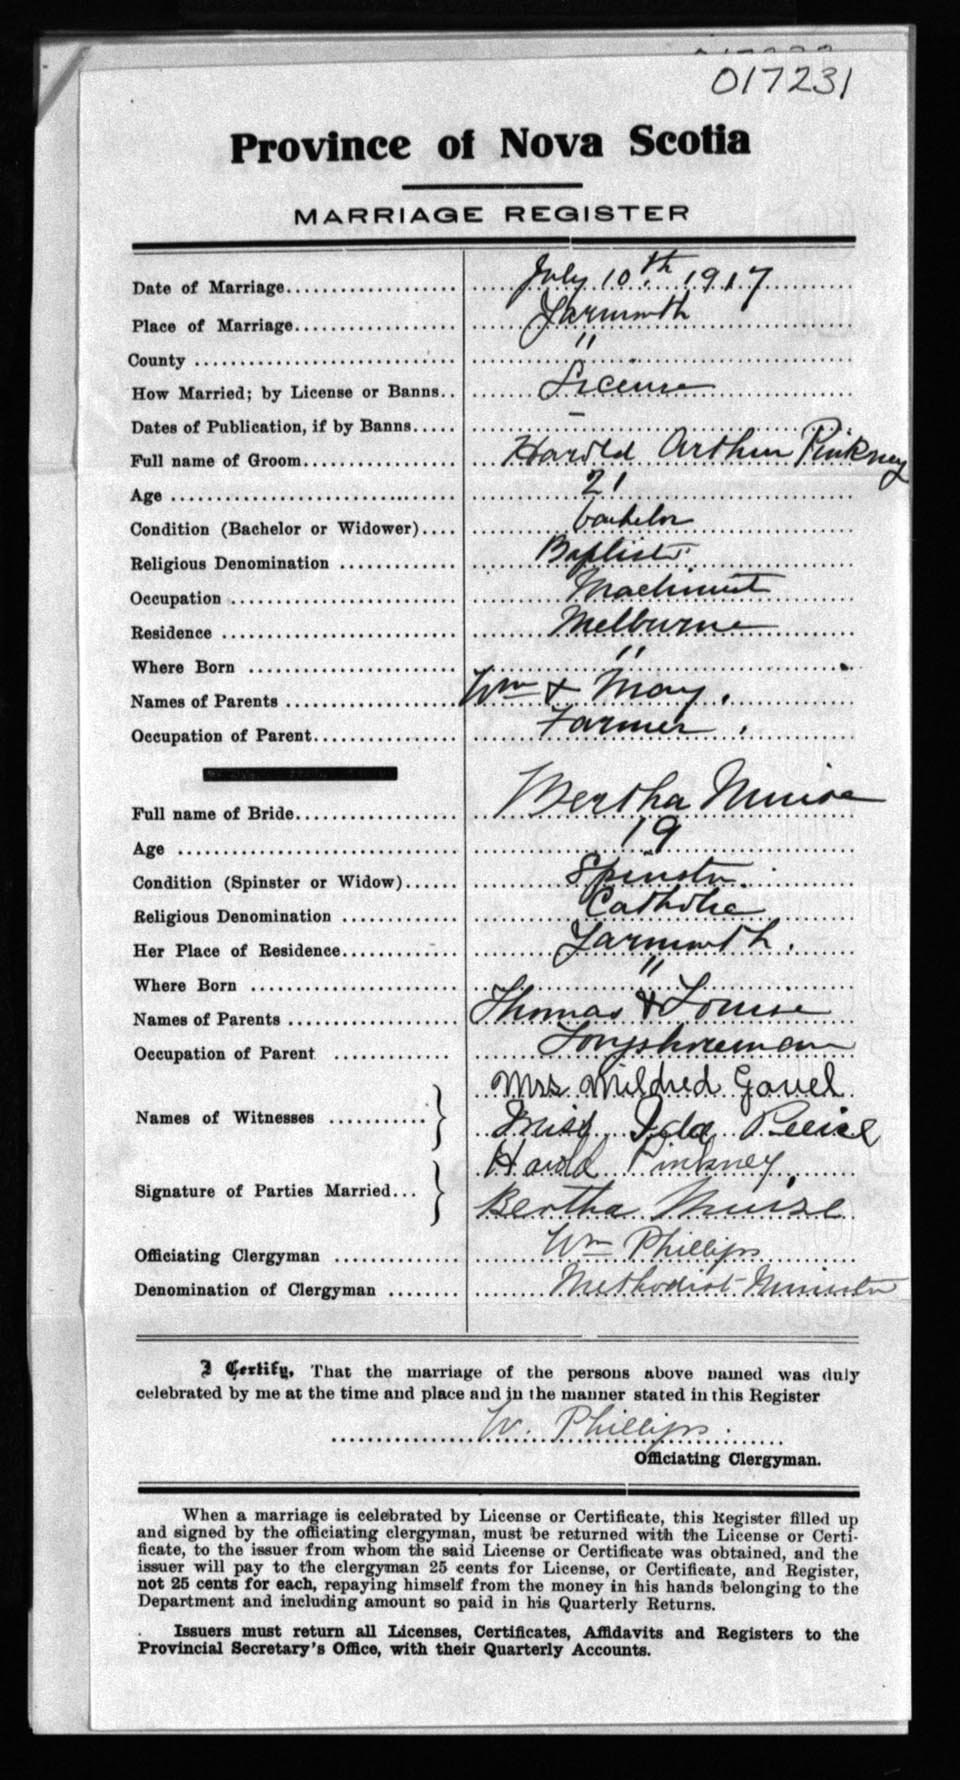 017231
Province of Nova Scotia
MARRIAGE REGISTER
Date of Marriage July 10th 1917
Place of Marriage Yarmouth
County "
How Married; by License or Banns License
Dates of Publication, if by Banns –
Full name of Groom Harold Arthur Pinkney
Age 21
Condition (Bachelor or Widower) bachelor
Religious Denomination Baptist
Occupation Machinist
Residence Melburne
Where Born "
Names of Parents Wm & May
Occupation of Parent Farmer
Full name of Bride Bertha Muise
Age 19
Condition (Spinster or Widow) Spinster
Religious Denomination Catholic
Her Place of Residence Yarmouth
Where Born "
Names of Parents Thomas & Louise
Occupation of Parent Longshoreman
Mrs Mildred Gavel
Names of Witnesses
Miss Ida
Harold Pinkney
Signature of Parties Married
Bertha Muise
Officiating Clergyman Wm Phillips
Denomination of Clergyman Methodist Minister
I Certify, That the marriage of the persons above named was duly
celebrated by me at the time and place and in the manner stated in this Register
W. Phillips.
Officiating Clergyman.
When a marriage is celebrated by License or Certificate, this Register filled up
and signed by the officiating clergyman, must be returned with the License or Certi-
ficate, to the issuer from whom the said License or Certificate was obtained, and the
issuer will pay to the clergyman 25 cents for License, or Certificate, and Register,
not 25 cents for each, repaying himself from the money in his hands belonging to the
Department and including amount so paid in his Quarterly Returns.
Issuers must return all Licenses, Certificates, Affidavits and Registers to the
Provincial Secretary's Office, with their Quarterly Accounts.